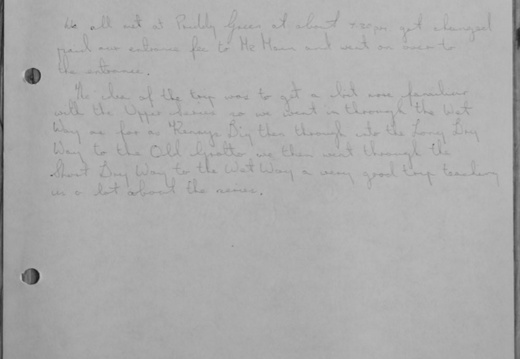 We all met at Priddy Green at about 7.30pm got changed
paid our entrance fee to Mr Main and went on over to
the entrance.
The idea of the trip was to get a bit more familiar
with the Upper series so we went in through the Wet
Way as far as Dig then through into the Long Dry
Way to the Old Grotto we then went through the
Short Dry Way to the Wet Way a very good trip teaching
us a lot about the series.